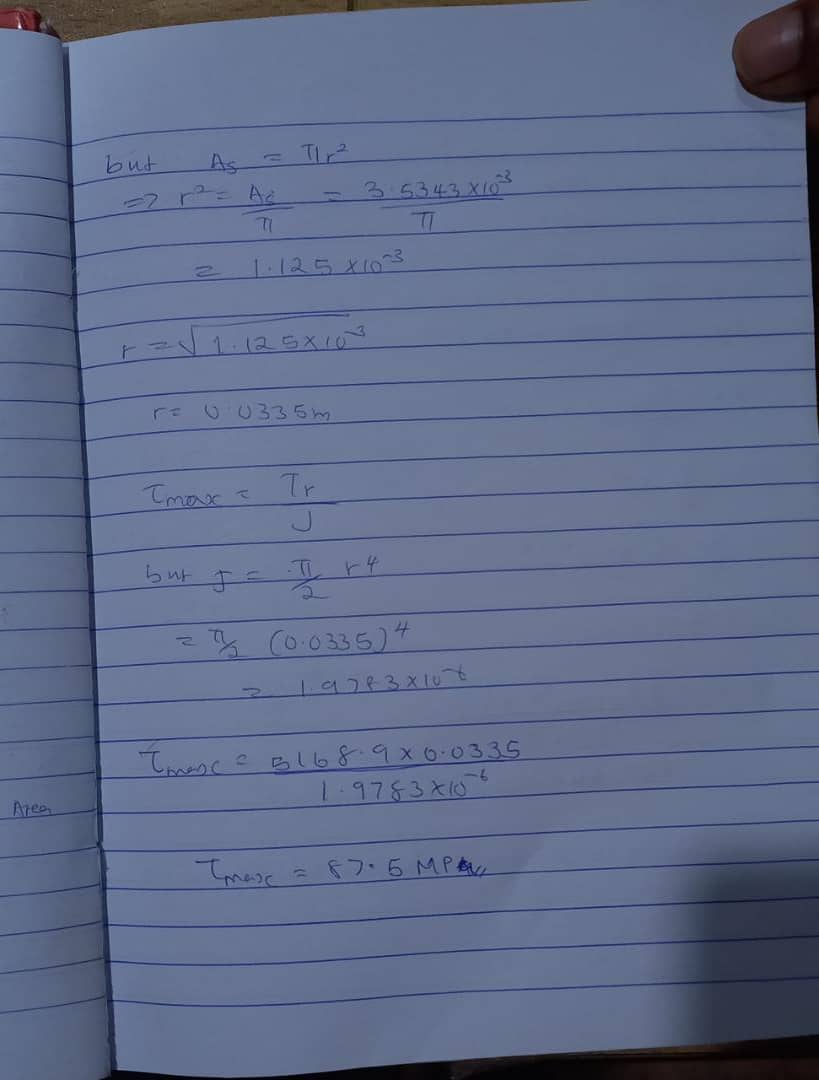 but As = πr²
=> r² = As/π = 3.5343 x10⁻³/π
= 1.125 x10⁻³
r = √1.125x10⁻³
r = 0.0335m
τmax = Tr/J
but J = π/2 r⁴
= π/2 (0.0335)⁴
= 1.9783x10⁻⁶
τmax = 5168.9 x 0.0335/1.9783x10⁻⁶
Area
τmax = 87.5 MPa